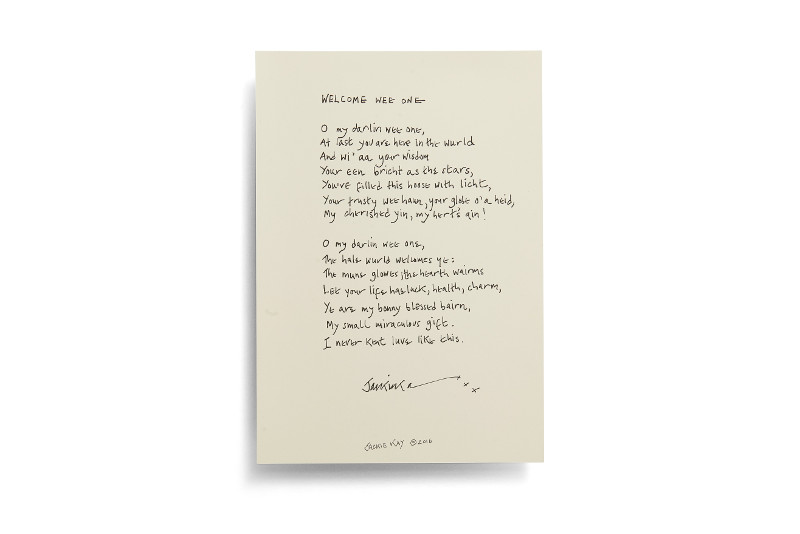 WELCOME WEE ONE
O my darlin wee one,
At last you are here in the wurld
And wi' aa your wisdom
Your een bricht as the stars,
You've filled this hoose with licht,
Your trusty wee haun, your globe o' a heid,
My cherished yin, my hert's ain!
O my darlin wee one,
The hale wurld welcomes ye:
The mune glowes; the hearth wairms
Let your life hae luck, health, charm,
Ye are my bonny blessed bairn,
My small miraculous gift.
I never kent luve like this.
JACKIE KAY © 2016